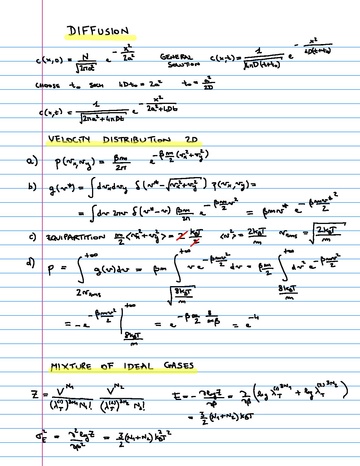 DIFFUSION
c(x,0) = N/√(2πa²) e^(-x²/2a²) GENERAL SOLUTION c(x,t) = 1/√(4πD(t+t₀)) e^(-x²/4D(t+t₀))
CHOOSE t₀ SUCH 4Dt₀ = 2a² t₀ = a²/2D
c(x,0) = 1/√(2πa²+4πDt) e^(-x²/2a²+4Dt)
VELOCITY DISTRIBUTION 2D
a) p(vx,vy) = βm/2π e^(-βm/2 (vx²+vy²))
b) g(v*) = ∫dvxdvy δ(v*-√(vx²+vy²)) p(vx,vy) =
= ∫dv 2πv δ(v*-v) βm/2π e^(-βmv²/2) = βmv* e^(-βmv*²/2)
c) EQUIPARTITION m/2 <vx²+vy²> = 2 kBT/2 <v²> = 2kBT/m vrms = √(2kBT/m)
d) P = ∫_(2vrms)^(+∞) g(v)dv = βm ∫_(√(8kBT/m))^(+∞) v e^(-βmv²/2) dv = βm/2 ∫_(8kBT/m)^(+∞) dv² e^(-βmv²/2)
= -e^(-βmv²/2) |_(8kBT/m)^(+∞) = e^(-βm/2 8/βm) = e^(-4)
MIXTURE OF IDEAL GASES
Z = V^N₁/((λT^(1))^(3N₁) N₁!) V^N₂/((λT^(2))^(3N₂) N₂!) E = -∂logZ/∂β = ∂/∂β (log λT^(1)3N₁ + log λT^(2)3N₂)
= 3/2 (N₁+N₂) kBT
σE² = ∂²logZ/∂β² = 3/2 (N₁+N₂) kB²T²